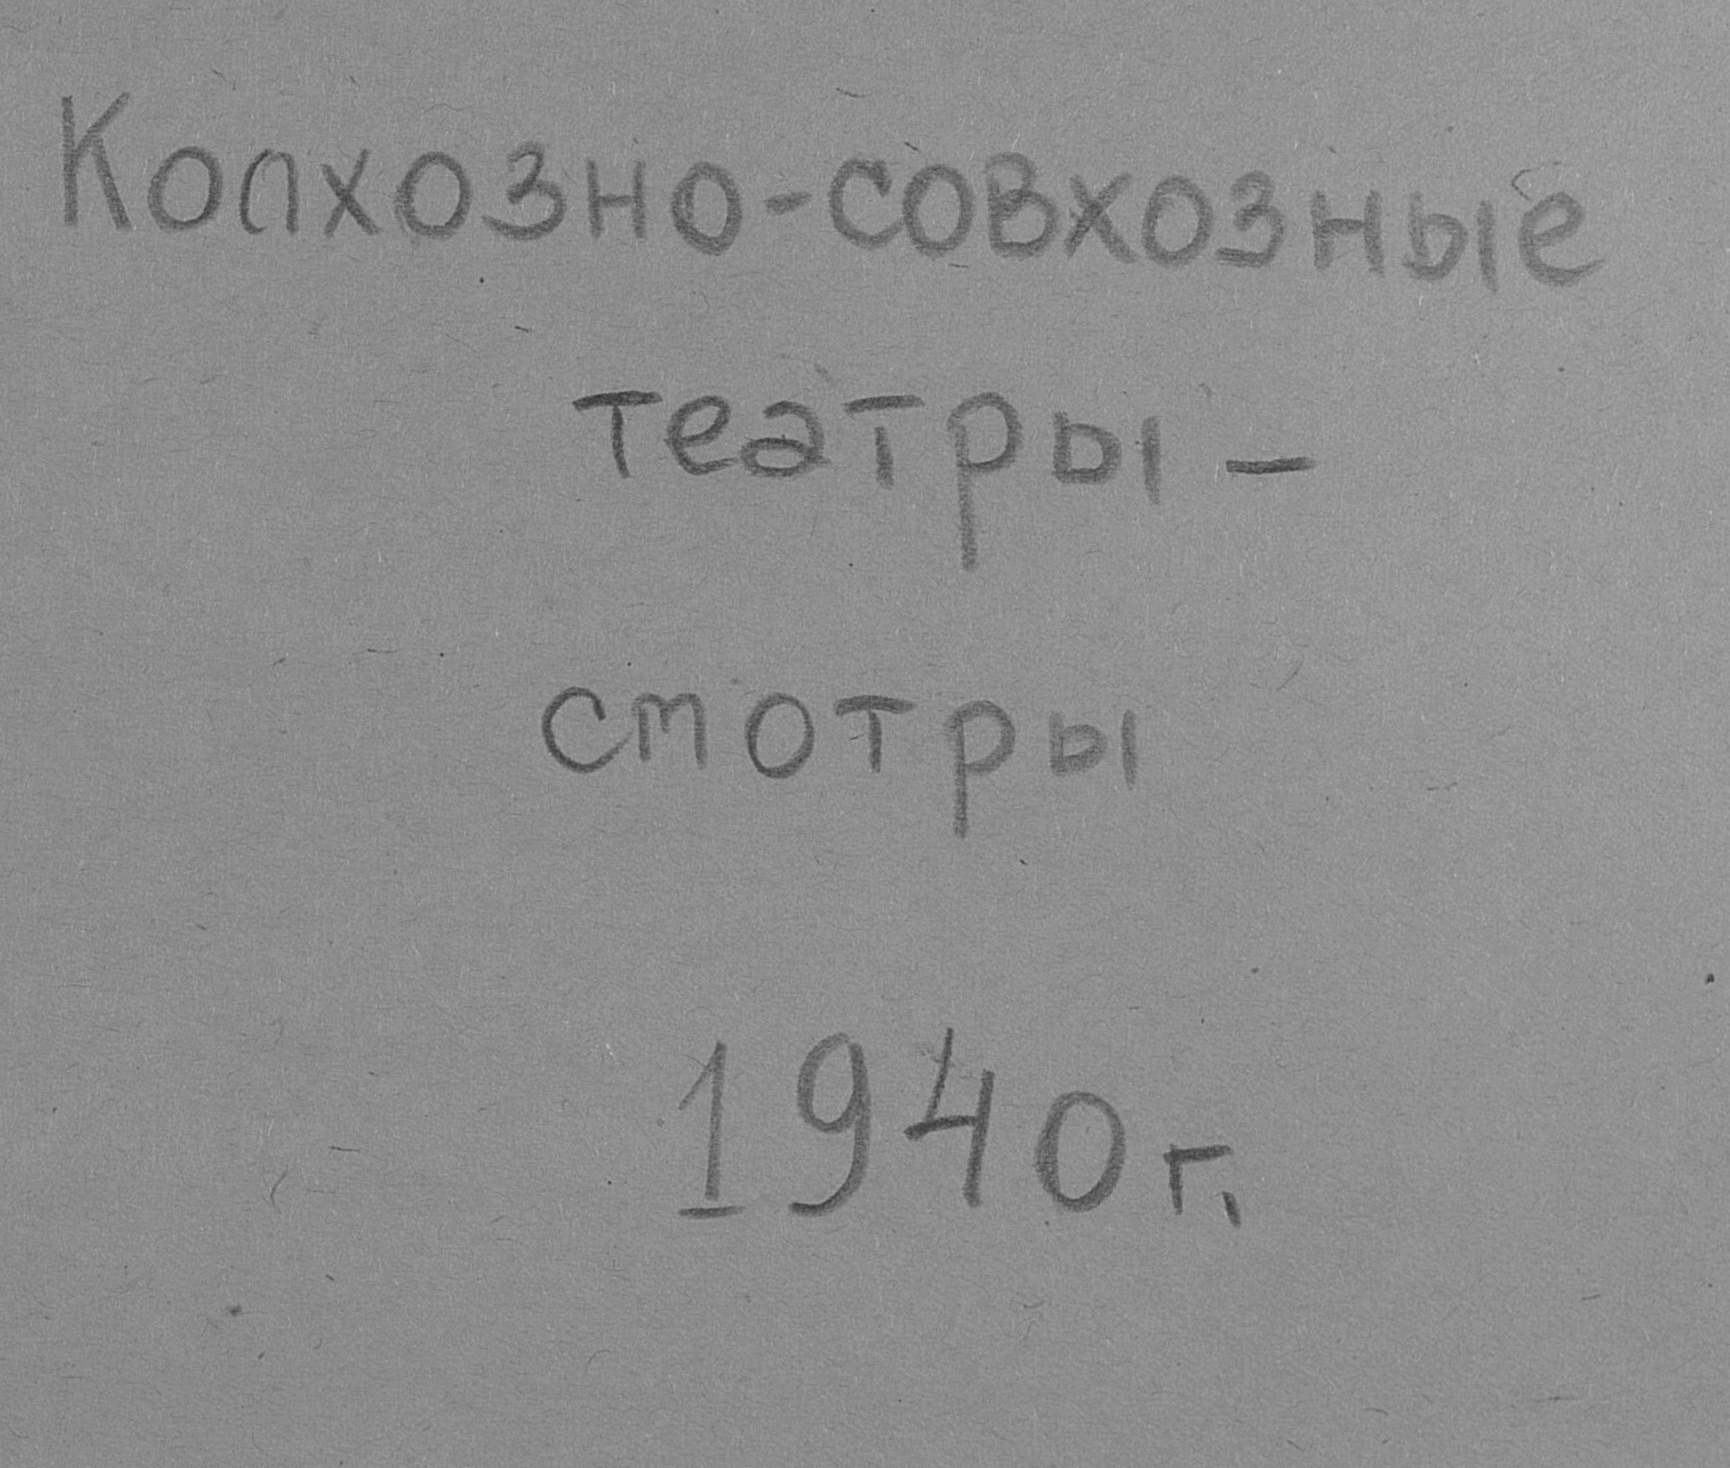 Колхозно-совхозные
театры –
смотры
1940 г.